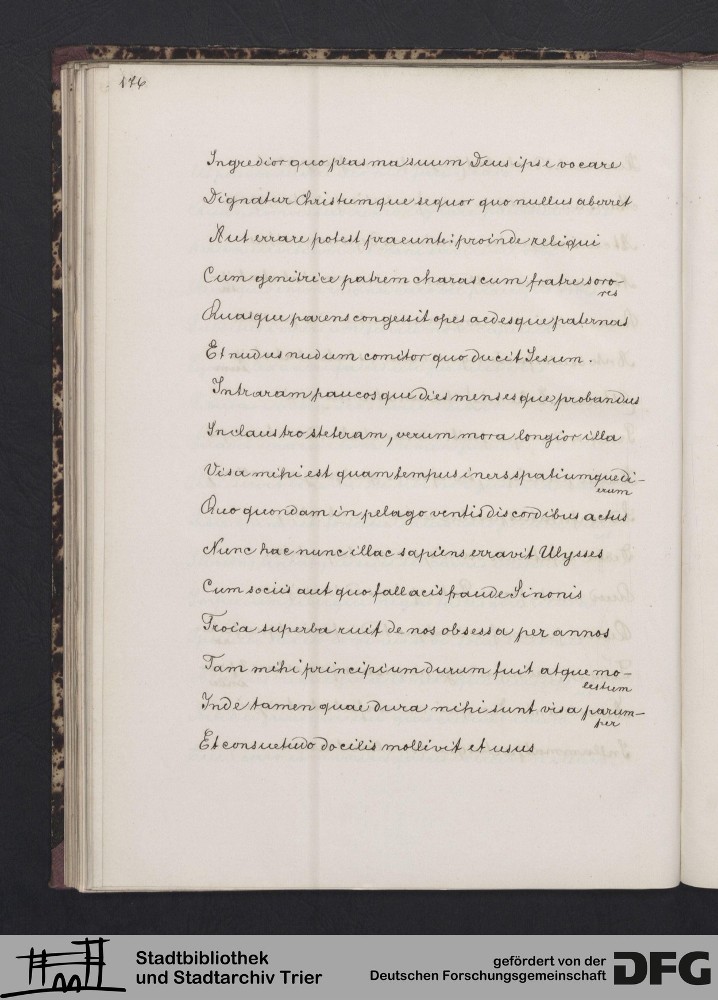 176
Ingredior quo plasma suum Deus ipse vocare
Dignatur Christumque sequor quo nullus aberret
Aut errare potest praeunte: proinde reliqui
Cum genitrice patrem charas cum fratre soro-
res
Quasque parens congessit opes aedesque paternas
Et nudus nudum comitor quo ducit Iesum.
Intraram paucosque dies mensesque probandus
In claustro steteram, verum mora longior illa
Visa mihi est quam tempus iners spatiumque di-
erum
Quo quondam in pelago ventis discordibus actus
Nunc hac nunc illac sapiens erravit Ulysses
Cum sociis aut quo fallacis fraude Sinonis
Troia superba ruit denos obsessa per annos
Tam mihi principium durum fuit atque mo-
lestum
Inde tamen quae dura mihi sunt visa parum-
per
Et consuetudo docilis mollivit et usus
Stadtbibliothek
und Stadtarchiv Trier
gefördert von der
Deutschen Forschungsgemeinschaft
DFG